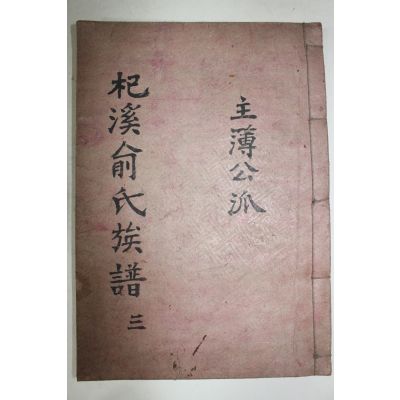 杞溪俞氏族譜 三
主簿公派